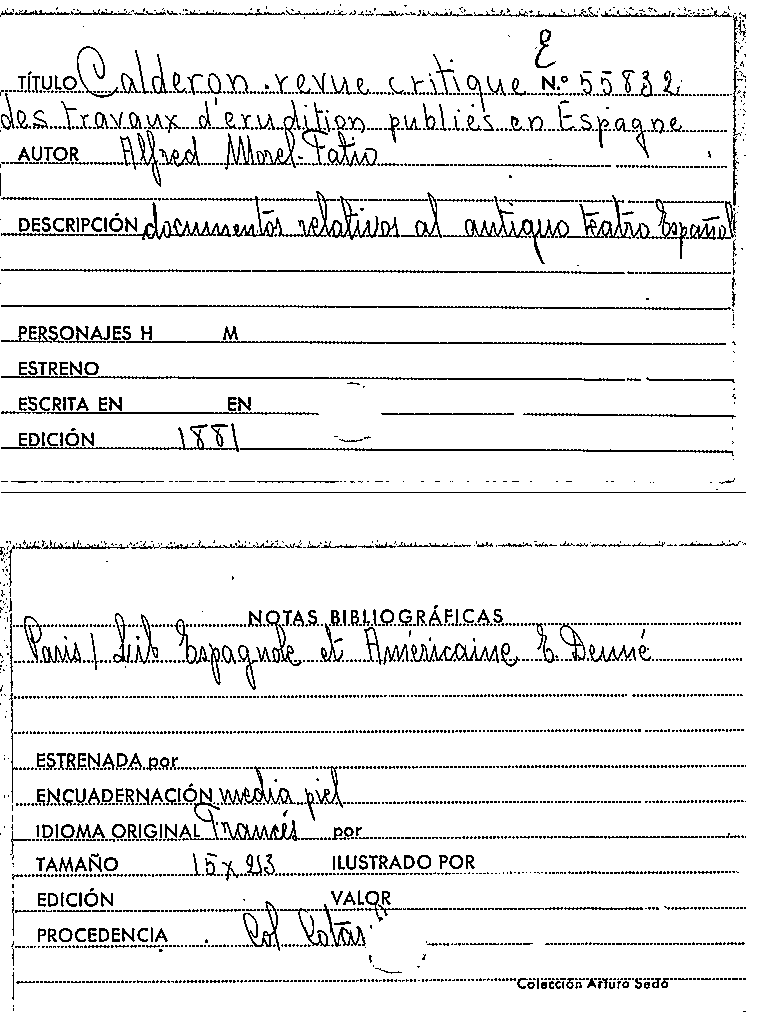 E
TÍTULO Calderon. revue critique N.º 55832
des travaux d'erudition publiés en Espagne
AUTOR Alfred Morel-Fatio
DESCRIPCIÓN documentos relativos al antiguo teatro Español
PERSONAJES H M
ESTRENO
ESCRITA EN EN
EDICIÓN 1881
NOTAS BIBLIOGRÁFICAS
Paris / Lib Espagnole et Américaine E. Denné
ESTRENADA por
ENCUADERNACIÓN media piel
IDIOMA ORIGINAL Francés por
TAMAÑO 15 x ILUSTRADO POR
EDICIÓN VALOR
PROCEDENCIA Col
Colección Arturo Sedó